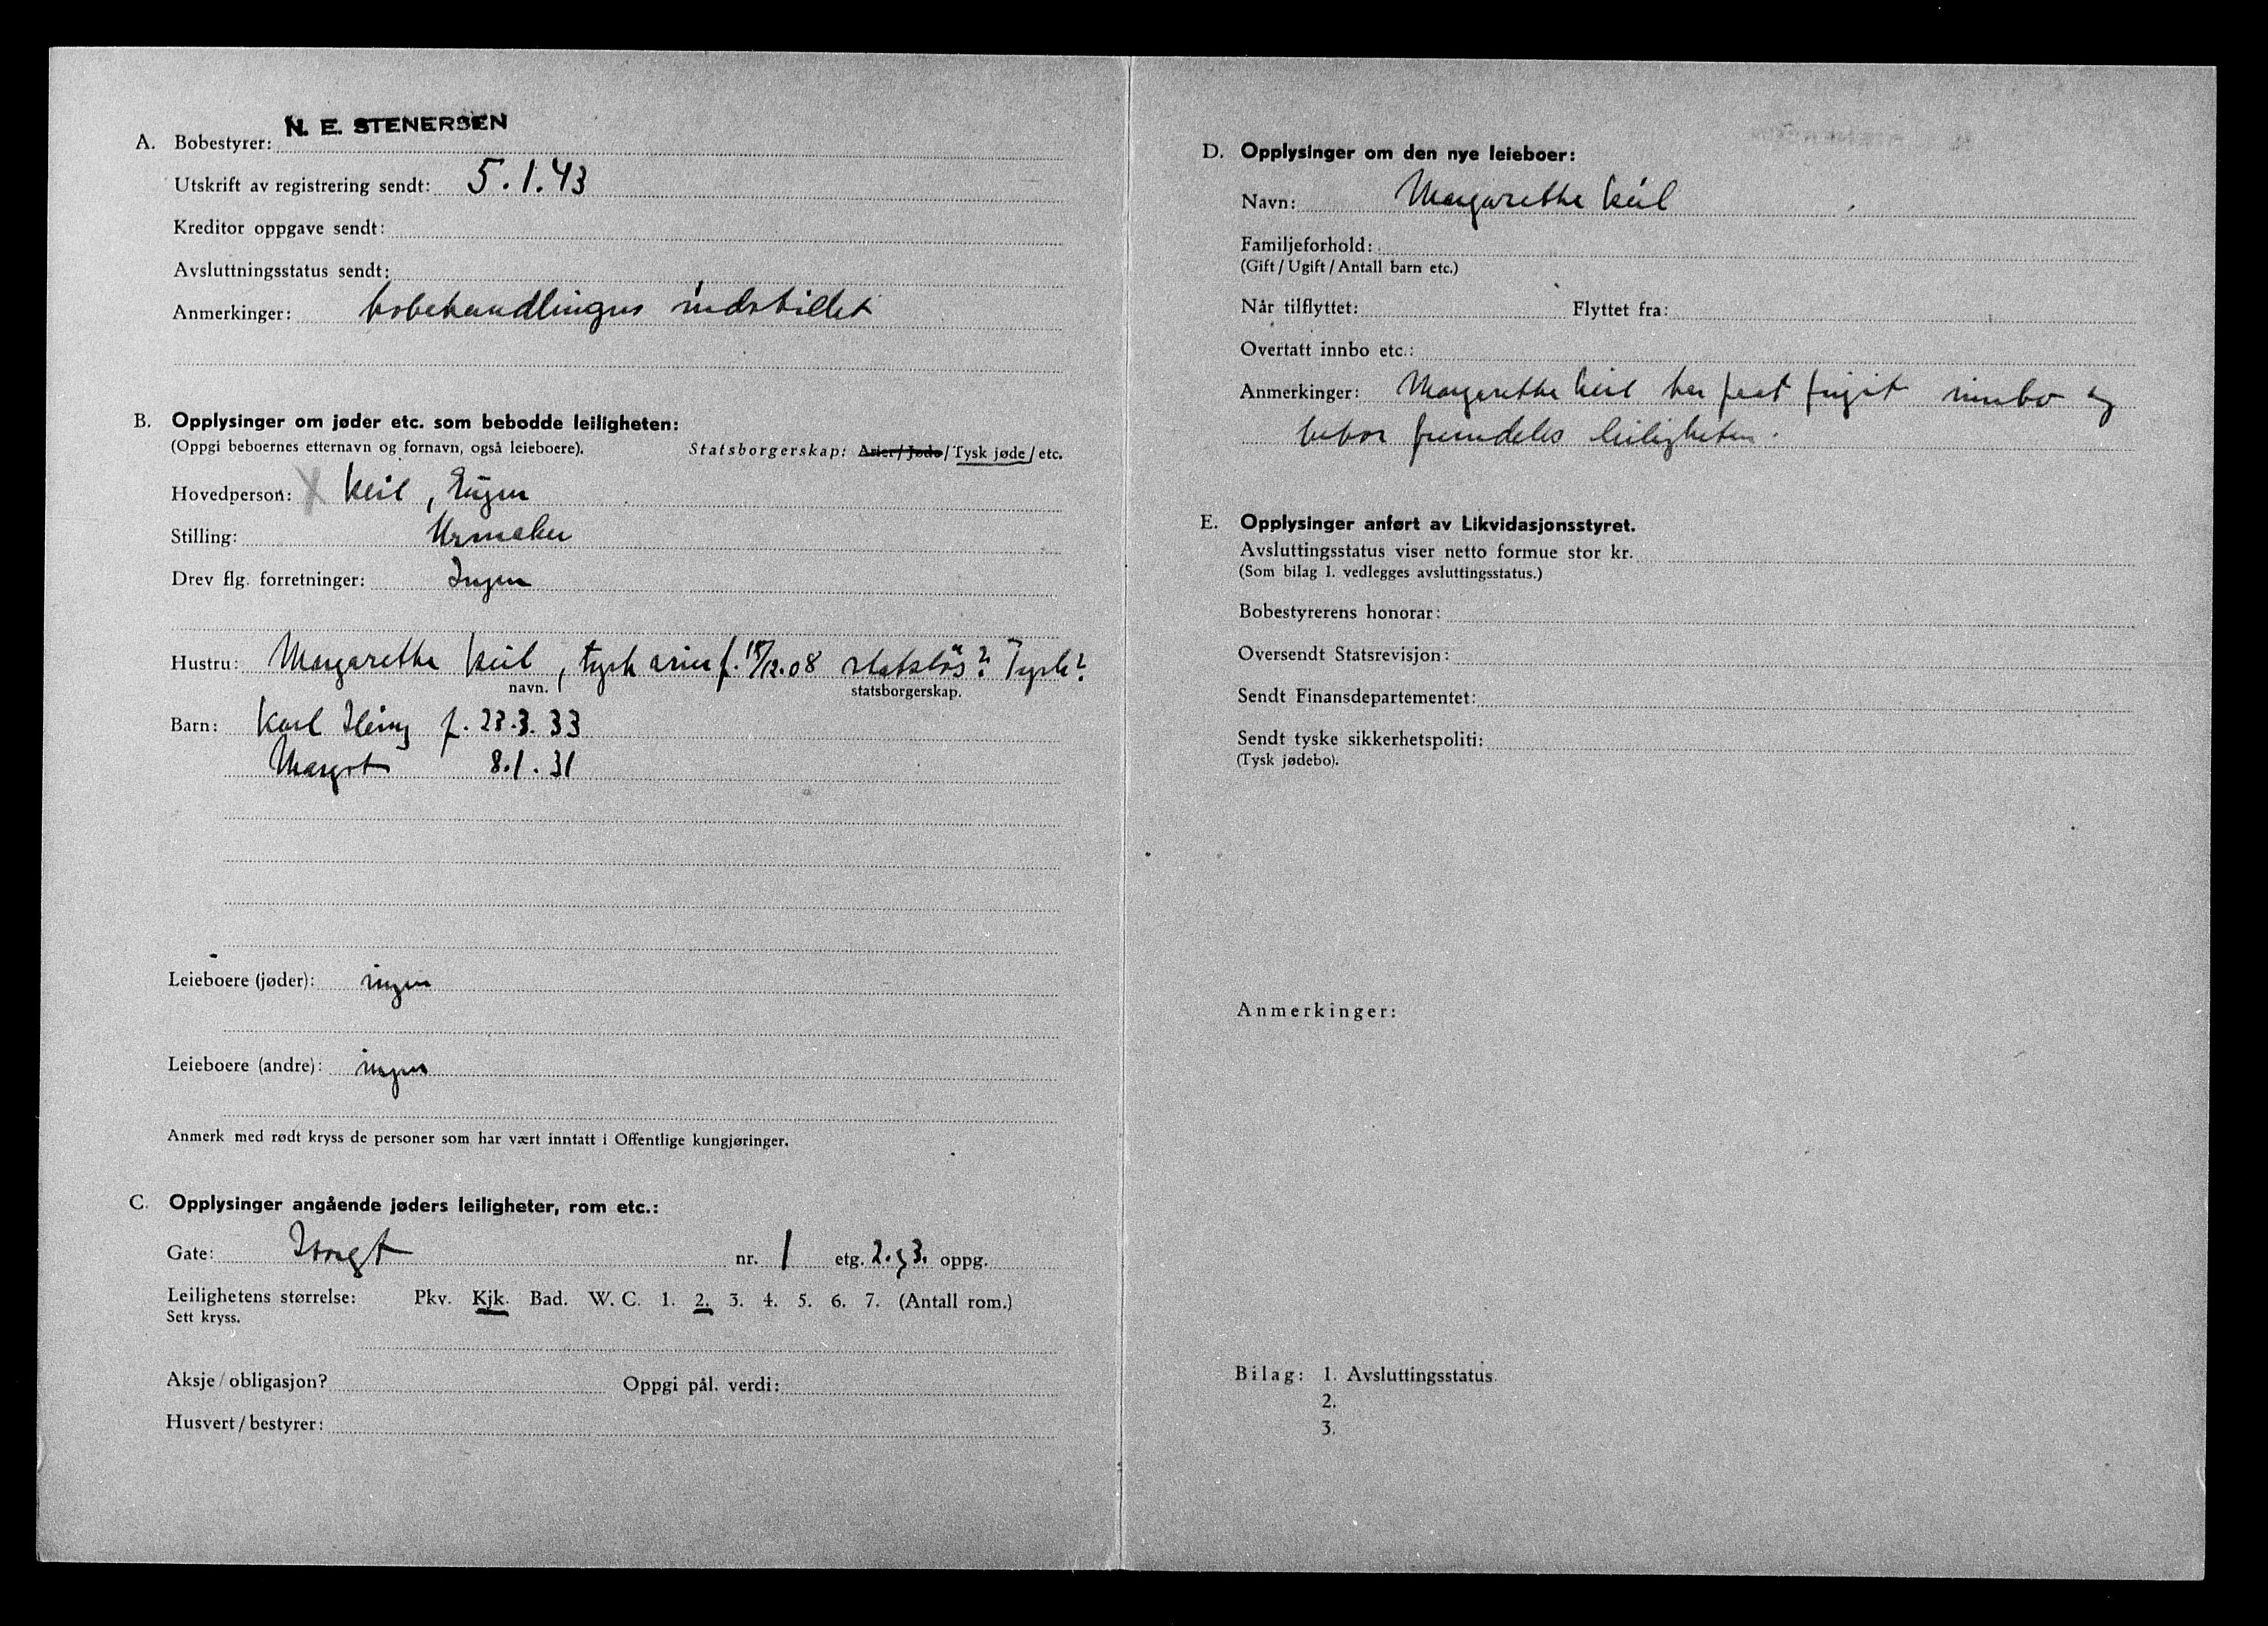 N. E. STENERSEN
A. Bobestyrer:
Utskrift av registrering sendt: 5.1.43
Kreditor oppgave sendt:
Avsluttningsstatus sendt:
Anmerkinger: bobehandlingen indstillet
B. Opplysinger om jøder etc. som bebodde leiligheten:
(Oppgi beboernes etternavn og fornavn, også leieboere). Statsborgerskap: Arier/Jøde/Tysk jøde/etc.
Hovedperson: X Keil, Eugen
Stilling: Urmaker
Drev flg. forretninger: Ingen
Hustru: Margarethe Keil, tysk arier f. 15/12.08 statsløs? Tysk?
navn. statsborgerskap.
Barn: Karl Heinz f. 23.3.33
Margot 8.1.31
Leieboere (jøder): ingen
Leieboere (andre): ingen
Anmerk med rødt kryss de personer som har vært inntatt i Offentlige kungjøringer.
C. Opplysinger angående jøders leiligheter, rom etc.:
Gate: nr. 1 etg. 2. og 3. oppg.
Leilighetens størrelse: Pkv. Kjk. Bad. W. C. 1. 2. 3. 4. 5. 6. 7. (Antall rom.)
Sett kryss.
Aksje/obligasjon? Oppgi pål. verdi:
Husvert/bestyrer:
D. Opplysinger om den nye leieboer:
Navn: Margarethe Keil
Familjeforhold:
(Gift/Ugift/Antall barn etc.)
Når tilflyttet: Flyttet fra:
Overtatt innbo etc.:
Anmerkinger: Margarethe Keil har faat frigit innbo og
bebor fremdeles leiligheten.
E. Opplysinger anført av Likvidasjonsstyret.
Avsluttingsstatus viser netto formue stor kr.
(Som bilag 1. vedlegges avsluttingsstatus.)
Bobestyrerens honorar:
Oversendt Statsrevisjon:
Sendt Finansdepartementet:
Sendt tyske sikkerhetspoliti:
(Tysk jødebo).
Anmerkinger:
Bilag: 1. Avsluttingsstatus.
2.
3.